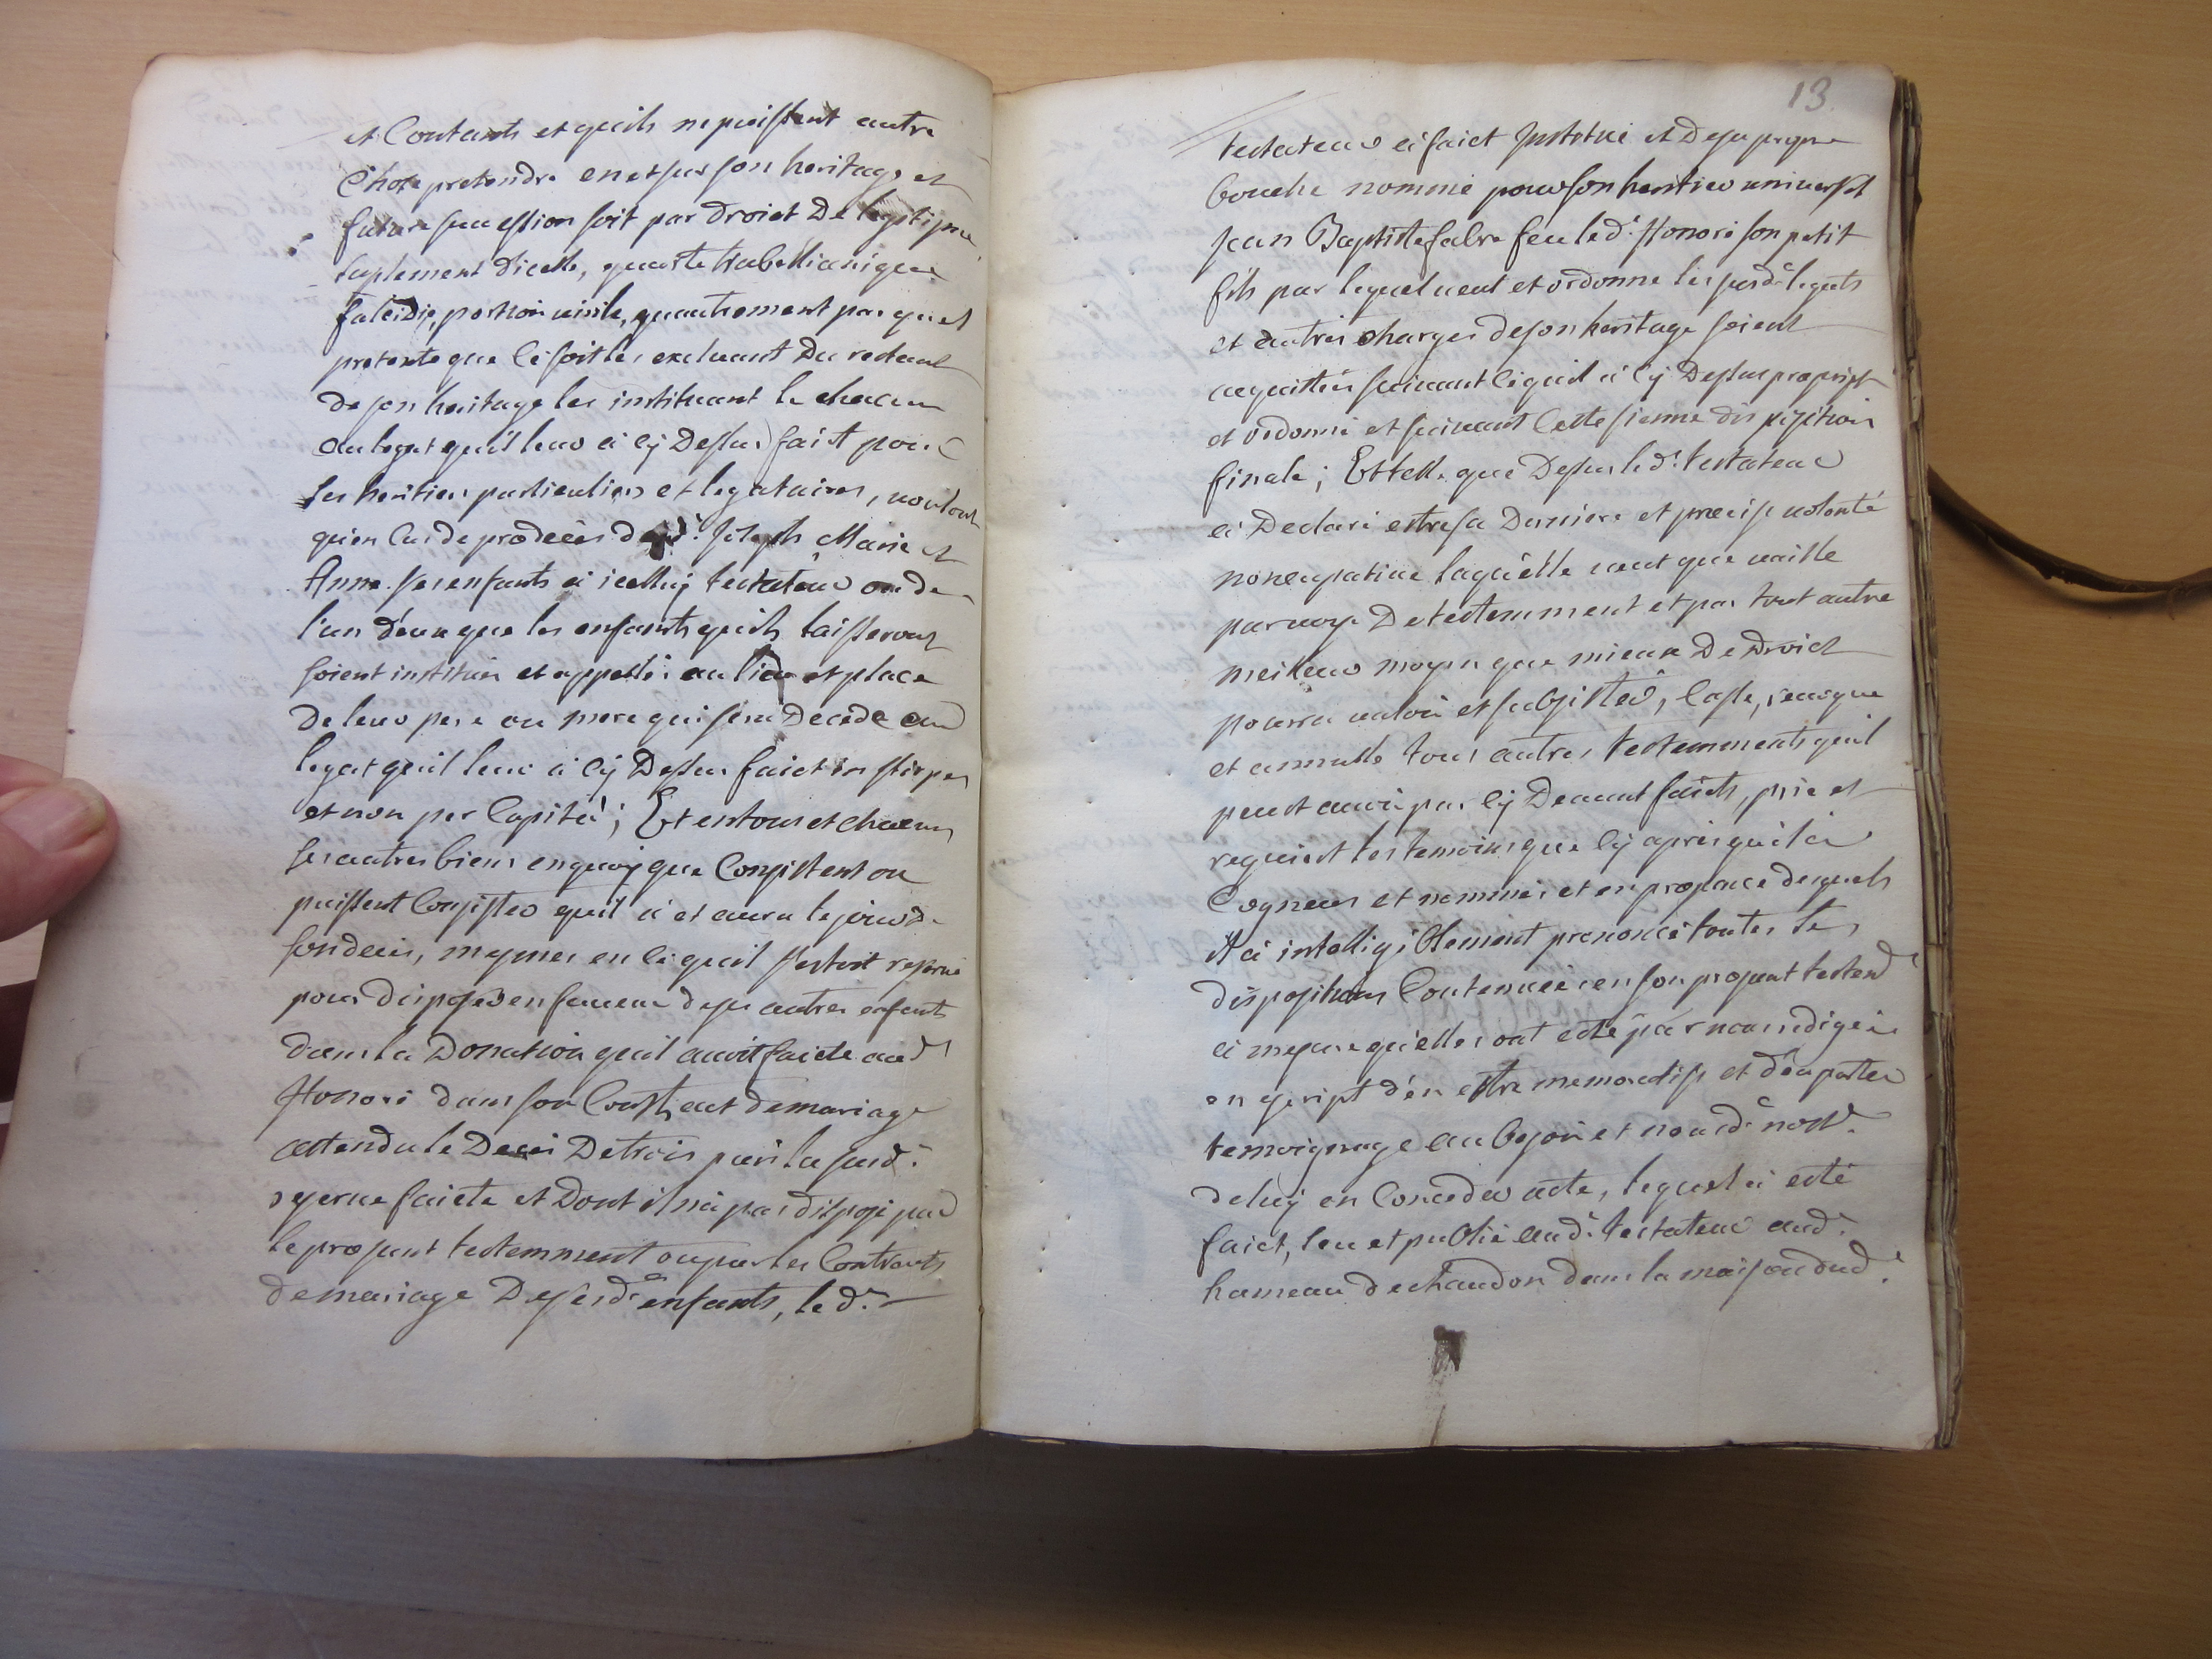 et Contants et quils ne puissent autre
Chose pretendre en et sur son heritage et
future sucession soit par droict De legitime
suplement dicelle, quarte trabellianique
falcidie, portion virile, quautrement par quel
pretexte que ce soit les excluant Du restant
de son heritage les instituant le chacun
au legat quil leur à cy Dessus faict pour
ses heritiers particuliers et legataires, voulant
qu'en Cas de predeces desd.s Joseph Marie et
Anne ses enfants à icelluy testateur ou de
l'un d'eux que les enfants quils laisseront
soient institues et appellés au lieu et place
de leur pere ou mere qui sera Decedé au
legat quil leur à cy Dessus faict in stirpes
et non per Capita; Et en tous et chacuns
ses autres biens en quoy que Consistent ou
puissent Consister quil à et aura le jour de
son deces, mesmes en ce quil sestoit reservé
pour disposer en faveur de ses autres enfants
dans la Donation quil avoit faicte aud.
Honoré dans son Contract de mariage
attendu le Deces De trois puis la susd.
reserve faicte et Dont il n'a pas disposé par
le present testemment ou par les Contracts
de mariage De sesd. enfants, led.
13
testateur à faict Institué et De sa propre
bouche nommé pour son heritier universel
Jean Baptiste fabre feu led. Honoré son petit
fils par lequel veut et ordonne les susd. legats
et autres charges de son heritage soient
acquittées suivant ce quil à cy Dessus prescript
et ordonné et suivant Cette sienne disposition
finale; Et telle que Dessus led. testateur
à Declaré estre sa Derniere et precise volonté
noncupative laquelle veut que vaille
par voye De testemment et par tout autre
meilleur moyen que mieux De Droict
pourra valoir et subsister, Casse, revoque
et annulle tous autres testemments quil
peut avoir par cy Devant faicts, prie et
requiert les temoins que cy apres quil à
Cogneus et nommés et en presence desquels
il à intelligiblement prononcé toutes les
dispositions Contenues en son present testem.t
à mesure quelles ont esté par nous redigées
en escript d'en estre memoratifs et d'en porter
temoignage au besoin et nousd. not.re
de luy en Conceder acte, lequel à esté
faict, leu et publié aud. testateur aud.
hameau de chaudon dans la maison dud.